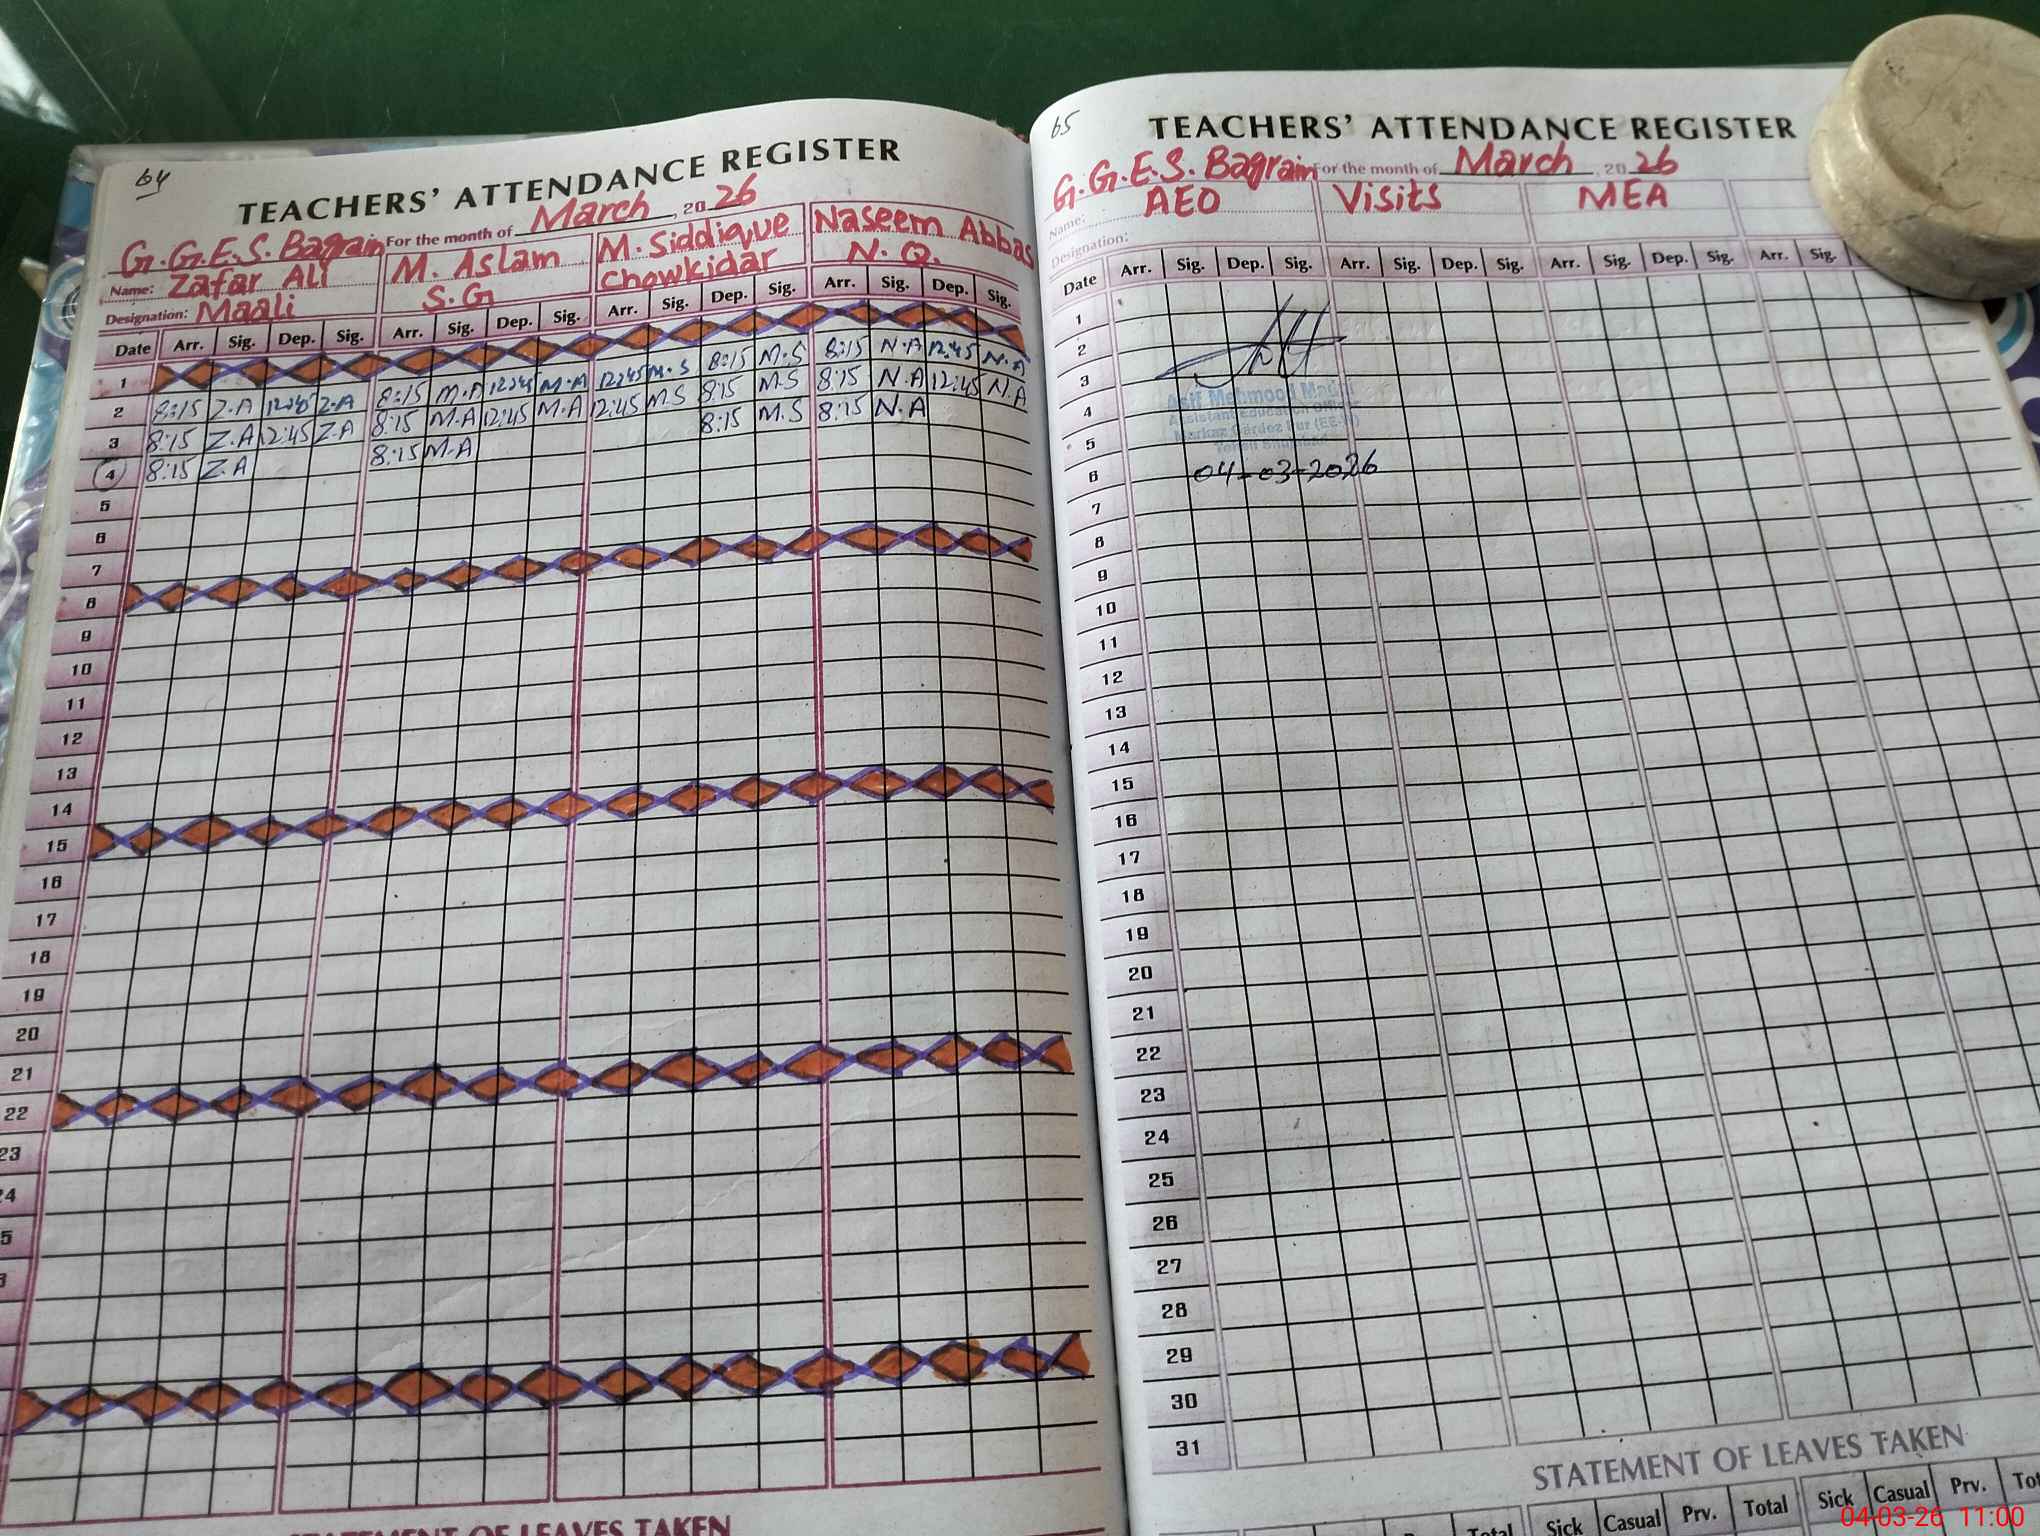 64
TEACHERS' ATTENDANCE REGISTER
G.G.E.S. Bagrain For the month of March, 2026
Name: Zafar Ali M. Aslam M. Siddique Naseem Abbas
Designation: Maali S.G Chowkidar N.Q.
Date Arr. Sig. Dep. Sig. Arr. Sig. Dep. Sig. Arr. Sig. Dep. Sig. Arr. Sig. Dep. Sig.
1
2 8:15 Z.A 12:45 Z.A 8:15 M.A 12:45 M.A 12:45 M.S 8:15 M.S 8:15 N.A 12:45 N.A
3 8:15 Z.A 12:45 Z.A 8:15 M.A 12:45 M.A 12:45 M.S 8:15 M.S 8:15 N.A 12:45 N.A
4 8:15 Z.A 8:15 M.A 8:15 M.S 8:15 N.A
5
6
7
8
9
10
11
12
13
14
15
16
17
18
19
20
21
22
23
24
STATEMENT OF LEAVES TAKEN
65
TEACHERS' ATTENDANCE REGISTER
G.G.E.S. Bagrain For the month of March, 2026
Name: AEO Visits MEA
Designation:
Date Arr. Sig. Dep. Sig. Arr. Sig. Dep. Sig. Arr. Sig. Dep. Sig. Arr. Sig.
1
2
3
Asif Mehmood
4
Assistant Education
5
Markaz
6 04-03-2026
7
8
9
10
11
12
13
14
15
16
17
18
19
20
21
22
23
24
25
26
27
28
29
30
31
STATEMENT OF LEAVES TAKEN
Total Sick Casual Prv. Total Sick Casual Prv.
04-03-26 11:00